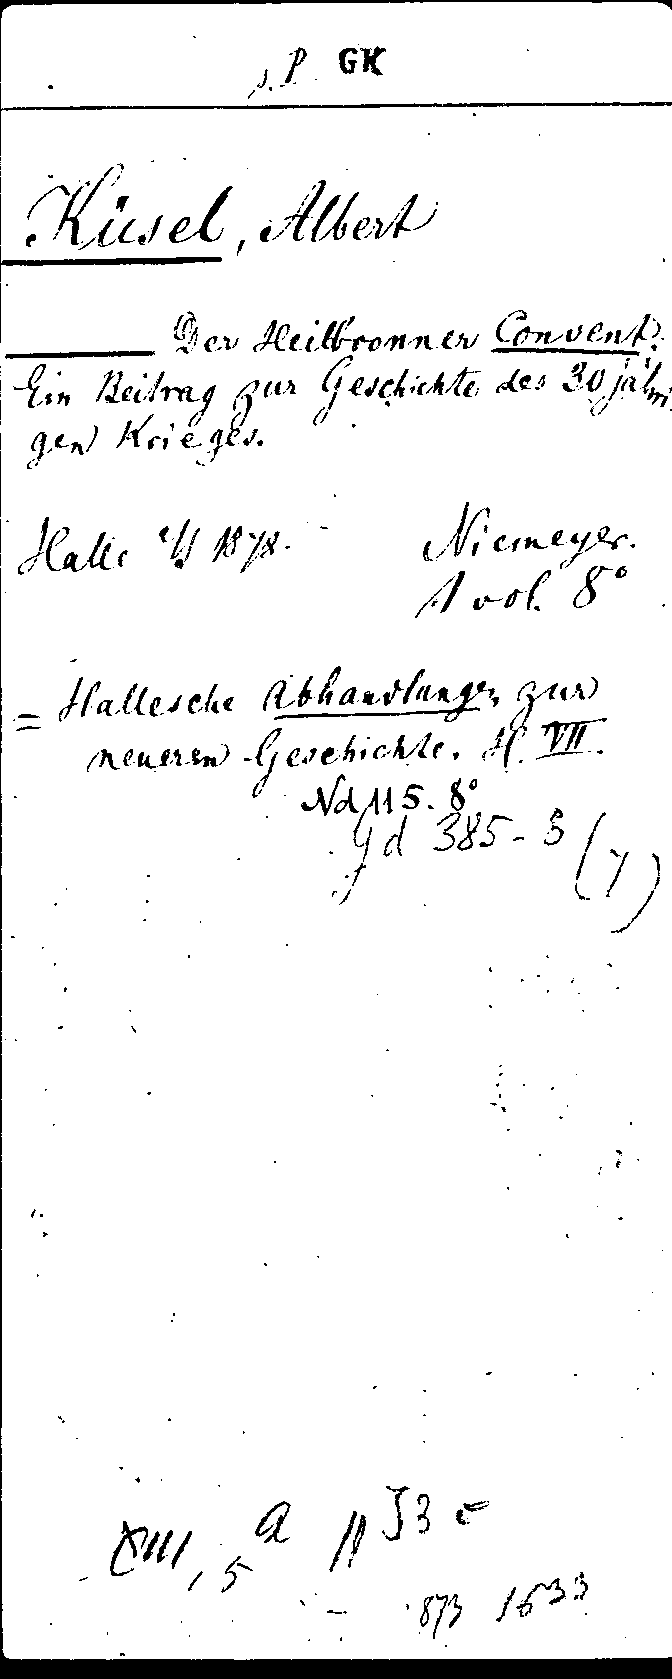 s. P. GK
Küsel, Albert
Der Heilbronner Convent.
Ein Beitrag zur Geschichte des 30jähri
gen Krieges.
Halle a/S 1878. Niemeyer.
1 vol. 8°
= Hallesche Abhandlungen zur
neueren Geschichte. H. VII.
Nd 115. 8°
Gd 385-3 (7)
XIII, 5 a
873 1633